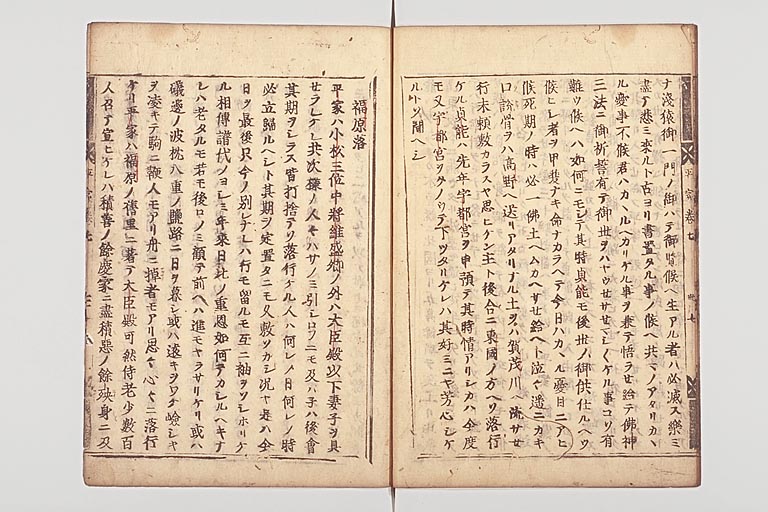 ナ浅猿御一門ノ御ハテ御覧候ヘ生アル者ハ必滅ス樂ミ
盡テ悲ミ來ルト古ヨリ書置タル事ノ候ヘ共マノアタリカヽ
ル憂事不候君ハカヽルヘカリケル事ヲ兼テ悟ラセ給テ佛神
三法ニ御祈誓有テ御世ヲハヤウセサセマシ〱ケル事コソ有
難ウ候ヘハ如何ニモシテ其時貞能モ後世ノ御供仕ルヘウ
候ヒシ者ヲ甲斐ナキ命ナカラヘテ今日ハカヽル憂目ニアヒ
候死期ノ時ハ必一佛土ヘムカヘサセ給ヘト泣々遙ニカキ
口説骨ヲハ高野ヘ送リアタリナル土ヲハ賀茂川ヘ流サセ
行末頼敷カラスヤ思ヒケン主ト後合ニ東國ノ方ヘソ落行
ケル貞能ハ先年宇都宮ヲ申預テ其時情アリシカハ今度
モ又宇都宮ヲタノウテ下ツタリケレハ其好ミニヤ芳心シケ
ルトソ聞ヘシ
平家卷七
福原落
平家ハ小松三位中將維盛卿ノ外ハ大臣殿以下妻子ヲ具
サラレケレ共次樣ノ人々ハサノミ引シロフニモ及ハ子ハ後會
其期ヲシラス皆打捨テソ落行ケル人ハ何レノ日何レノ時
必立歸ルヘシト其期ヲ定置タニモ久敷ソカシ況ヤ是ハ今
日ヲ最後只今ノ別レナレハ行モ留ルモ互ニ袖ヲソシホリケ
ル相傳譜代ノヨシミ年來日比ノ重恩如何テカワスルヘキナ
レハ老タルモ若モ後ロノミ顧テ前ヘハ進モヤラサリケリ或ハ
礒邊ノ波枕八重ノ鹽路ニ日ヲ暮シ或ハ遠キヲワケ嶮シキ
ヲ凌キテ駒ニ鞭人モアリ舟ニ棹者モアリ思々心々ニ落行
ケリ平家ハ福原ノ舊里ニ著テ大臣殿可然侍老少數百
人召テ宣ヒケレハ積善ノ餘慶家ニ盡積惡ノ餘殃身ニ及
平家卷七